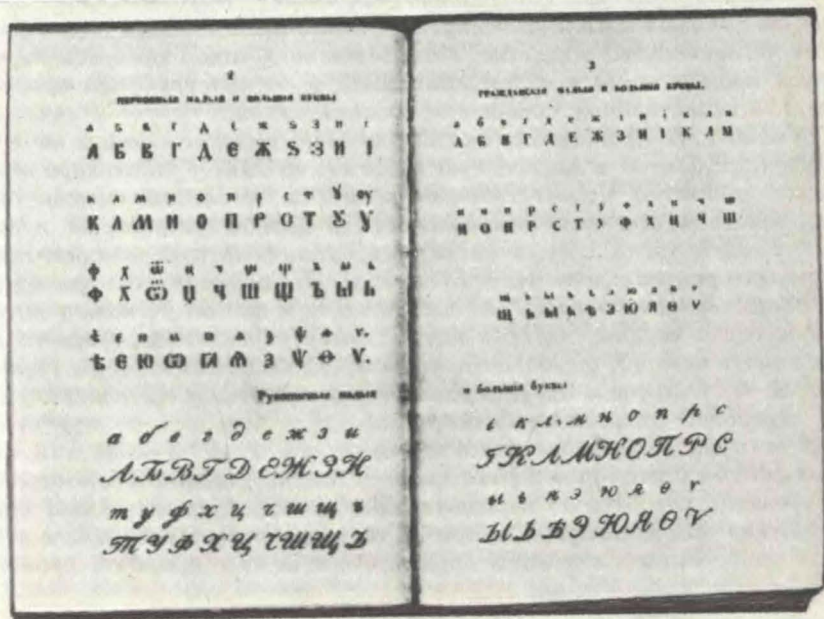 2
ЦЕРКОВНЫЯ МАЛЫЯ И БОЛЬШІЯ БУКВЫ
а б в г д є ж ѕ з и і
А Б В Г Д Є Ж Ѕ З И І
К Л М Н О П Р О Т Ꙋ Ѵ
ф х ѿ ц ч ш щ ъ ы ь
Ф Х Ѿ Ц Ч Ш Щ Ъ Ы Ь
Ѣ Є Ю Ѡ Ꙗ Ѧ З Ѱ Ѳ Ѵ.
Рукописныя малыя
а б в г д е ж з и
А Б В Г Д Е Ж З И
т у ф х ц ч ш щ ъ
Т У Ф Х Ц Ч Ш Щ Ъ
3
ГРАЖДАНСКІЯ МАЛЫЯ И БОЛЬШІЯ БУКВЫ.
а б в г д е ж з и і к л м
А Б В Г Д Е Ж З И І К Л М
н о п р с т у ф х ц ч ш
Н О П Р С Т У Ф Х Ц Ч Ш
щ ъ ы ь ѣ э ю я ѳ ѵ
Щ Ъ Ы Ь Ѣ Э Ю Я Ѳ Ѵ
и большія буквы
і к л м н о п р с
І К Л М Н О П Р С
ы ь ѣ э ю я ѳ ѵ
Ы Ь Ѣ Э Ю Я Ѳ Ѵ